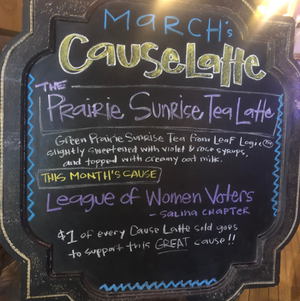 MARCH's
CauseLatte
THE
Prairie Sunrise Tea Latte
Green Prairie Sunrise Tea from Leaf Logic
slightly sweetened with violet & rose syrups,
and topped with creamy oat milk.
THIS MONTH'S CAUSE
League of Women Voters
- SALINA CHAPTER
$1 of every Cause Latte sold goes
to support this GREAT cause!!